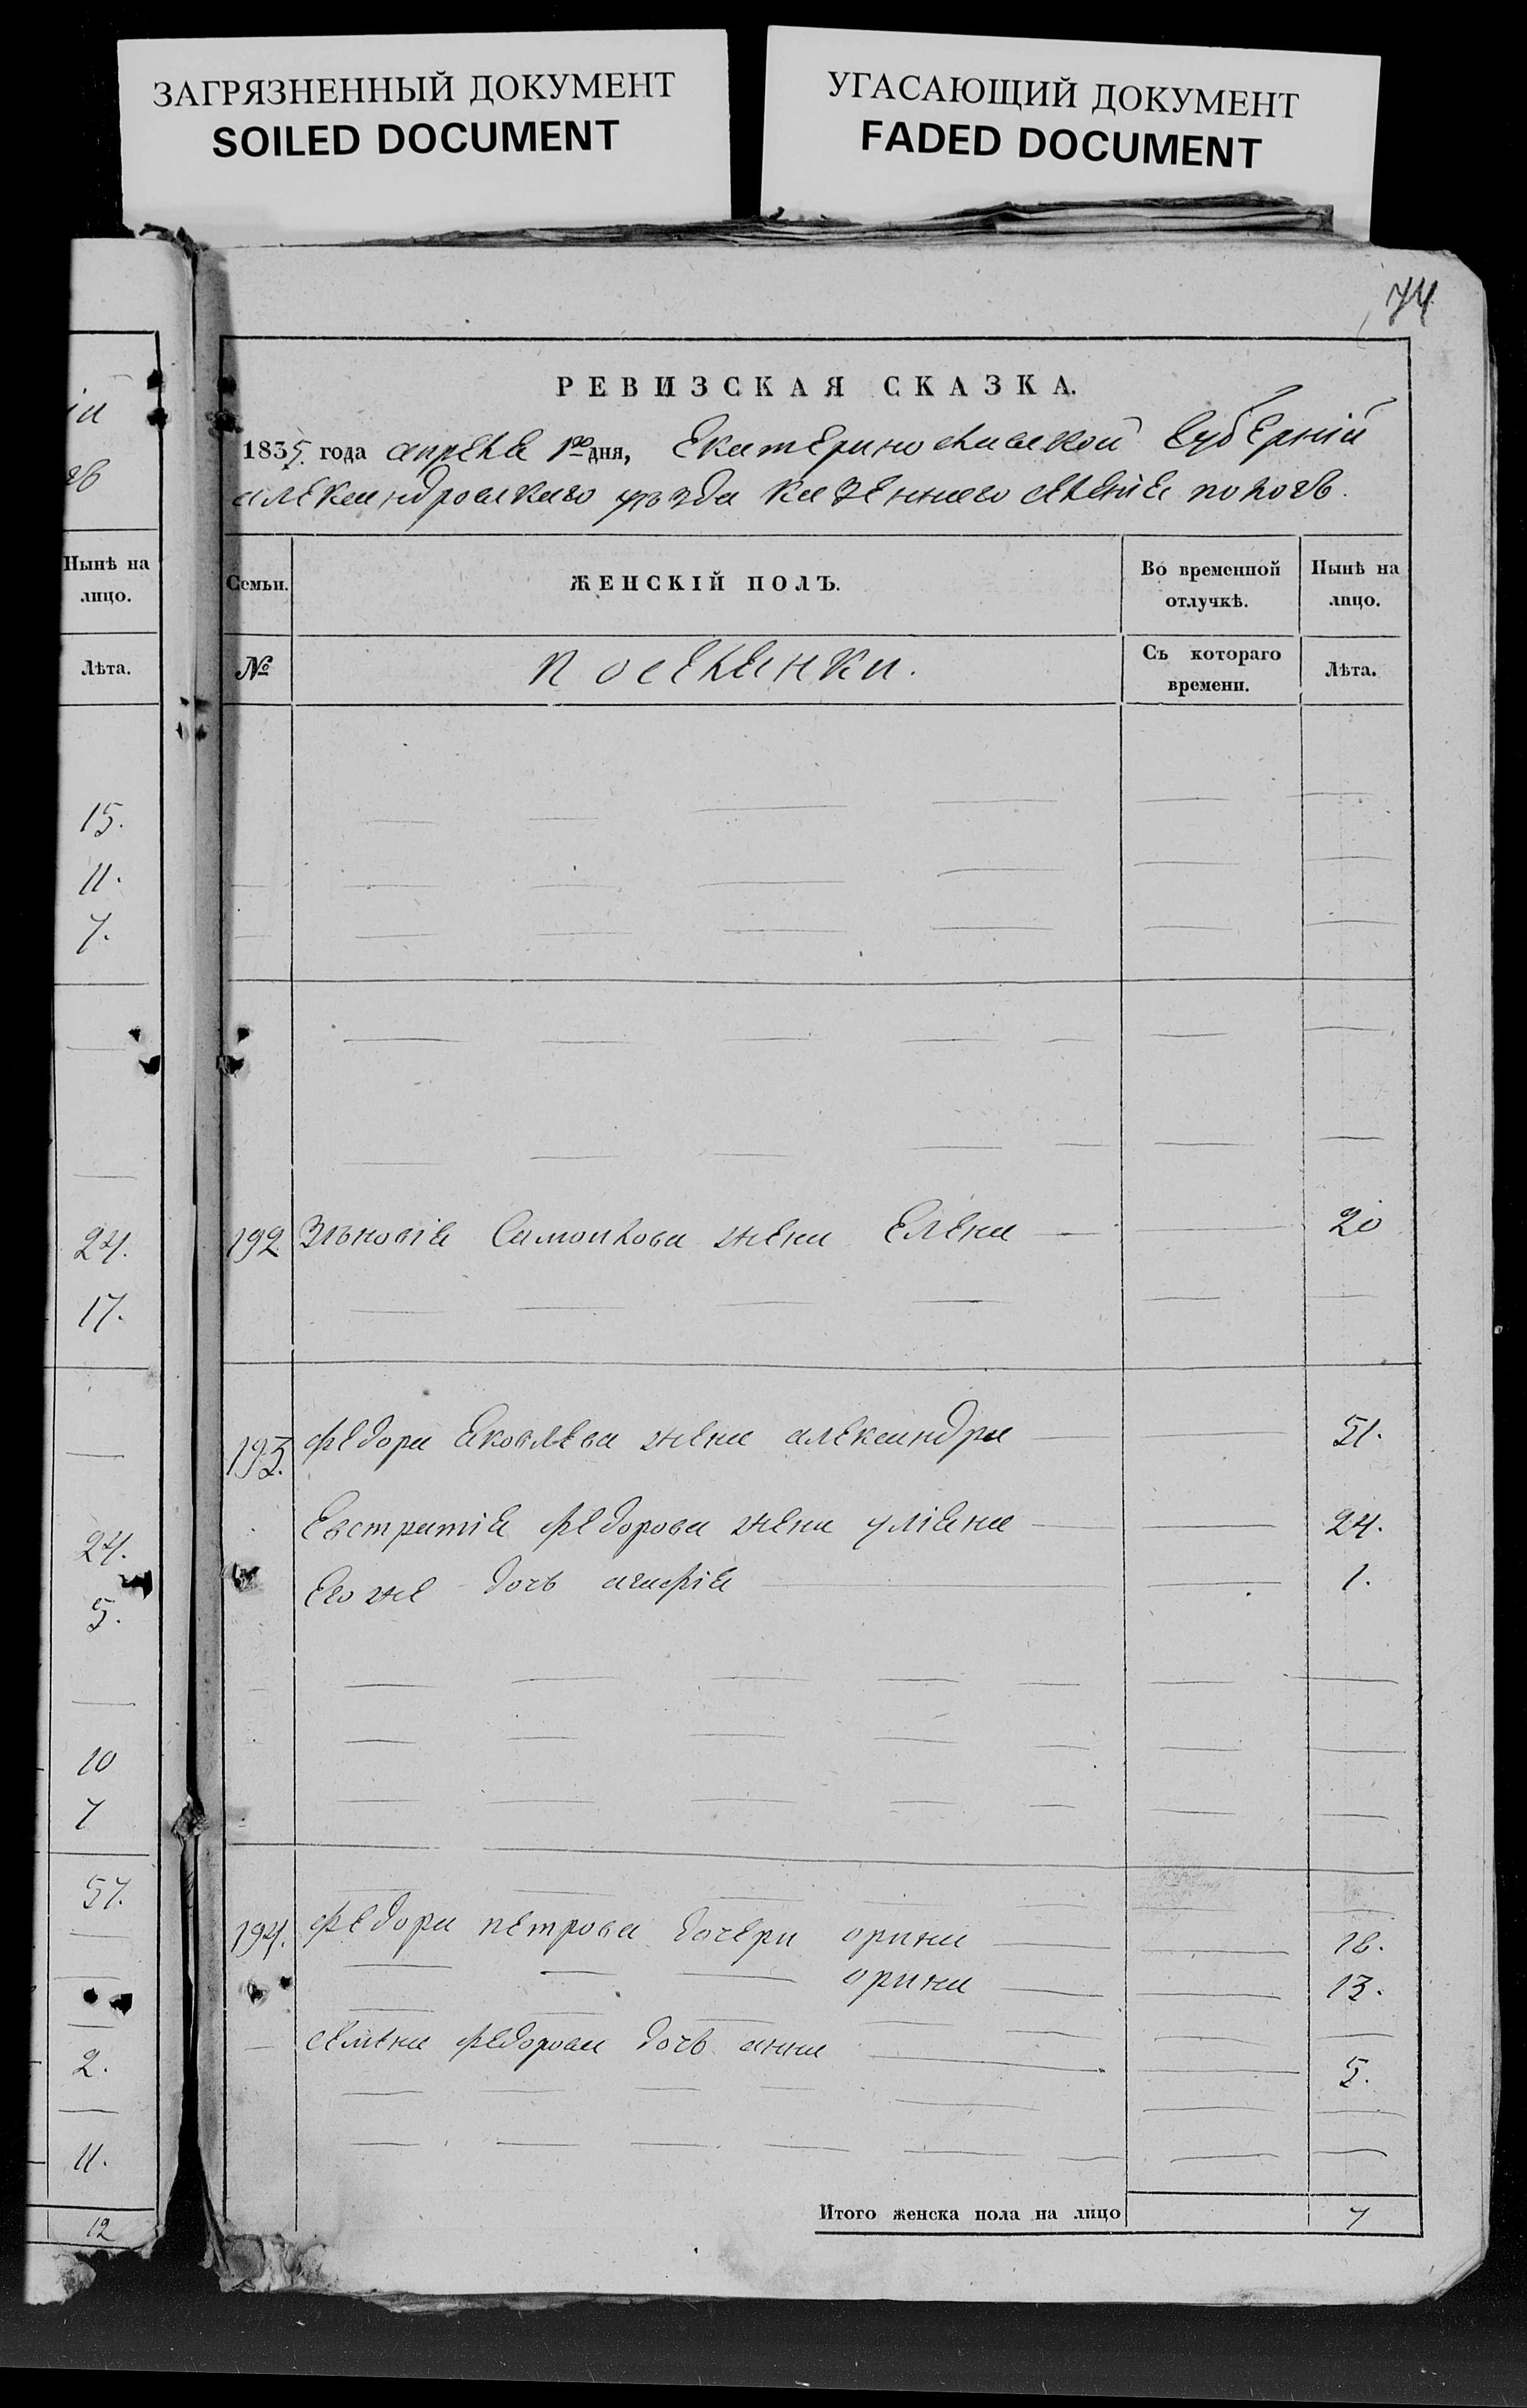 ЗАГРЯЗНЕННЫЙ ДОКУМЕНТ
SOILED DOCUMENT
УГАСАЮЩИЙ ДОКУМЕНТ
FADED DOCUMENT
74
РЕВИЗСКАЯ СКАЗКА.
1835. года апреля 1го дня, Екатеринославской Губерніи
александровскаго уѣзда казеннаго селенія пологъ.
Нынѣ на лицо.
Лѣта.
15.
11.
7.
24.
17.
24.
5.
10
7
57.
2.
11.
12
Семьи. ЖЕНСКІЙ ПОЛЪ. Во временной отлучкѣ. Нынѣ на лицо.
№ поселянки. Съ котораго времени. Лѣта.
192 Зѣновія Самойлова жена Елена 20
193. федора Яковлева жена александра 51.
Евстратія федорова жена уліяна 24.
Его же дочь агафія 1.
194. федора петрова дочери орина 18.
орина 13.
семена федорова дочь анна 5.
Итого женска пола на лицо 7